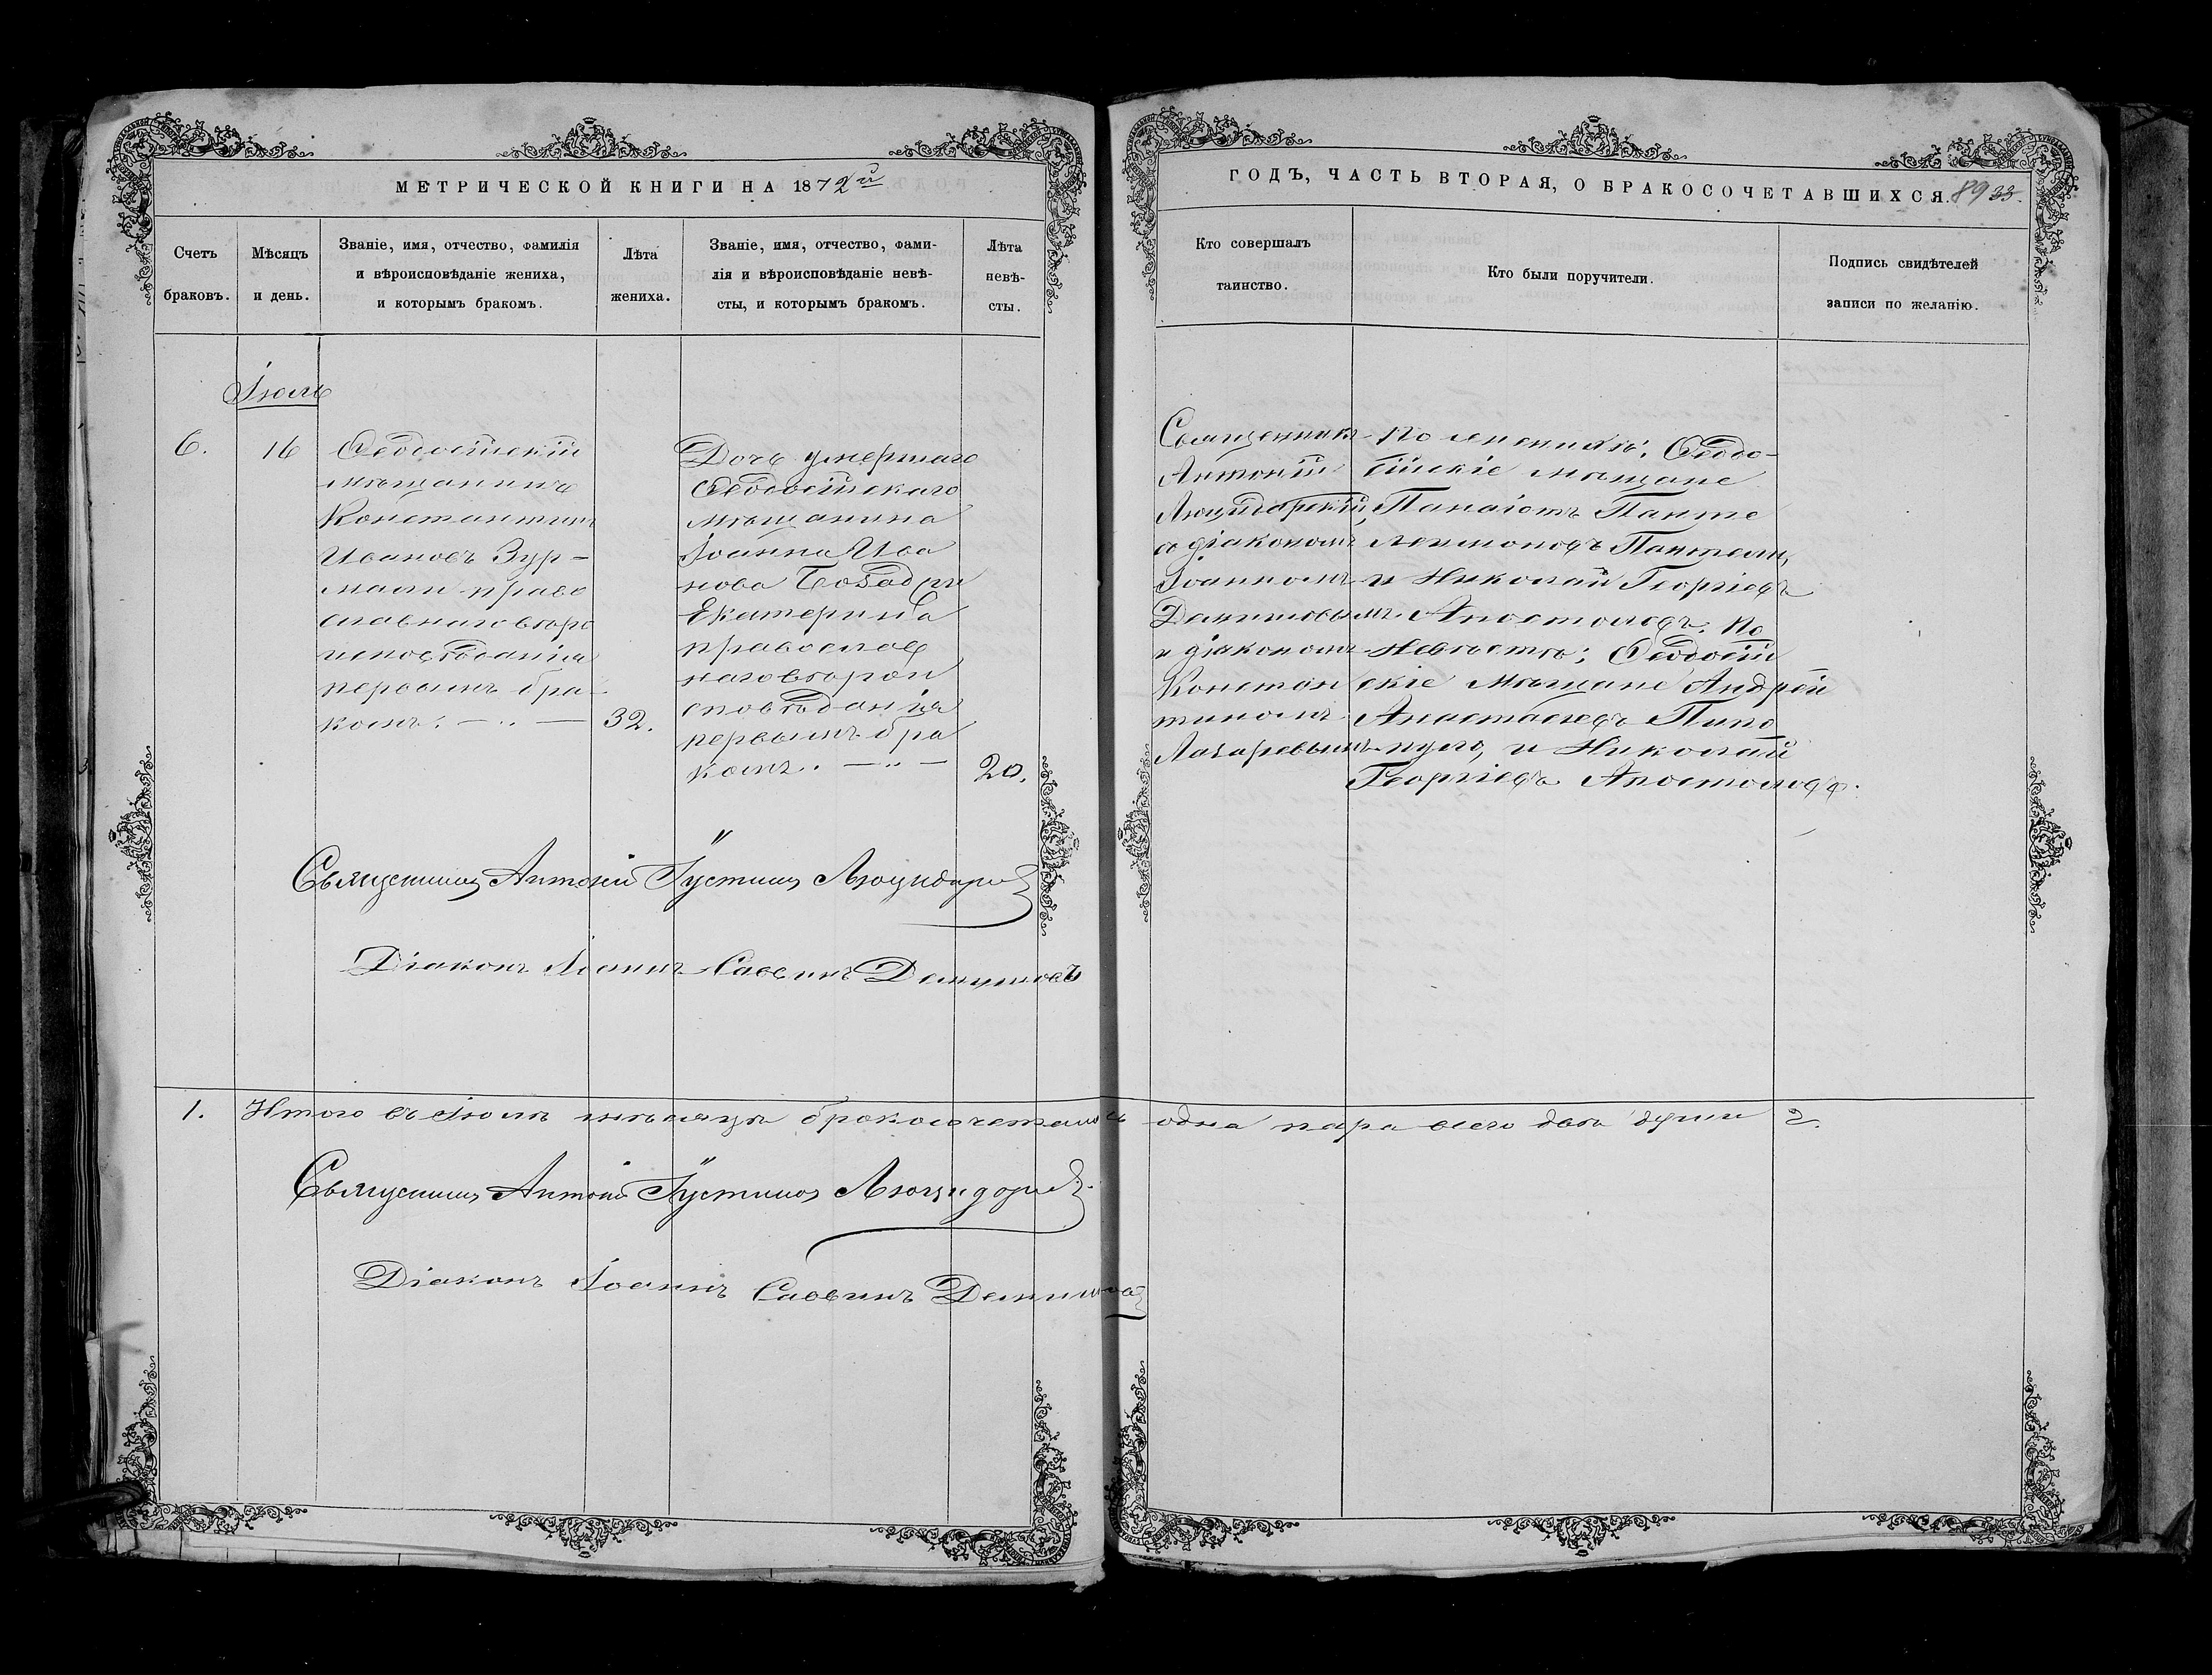 МЕТРИЧЕСКОЙ КНИГИ НА 1872й
ГОДЪ, ЧАСТЬ ВТОРАЯ, О БРАКОСОЧЕТАВШИХСЯ.
89 33.
Счетъ браковъ.
Мѣсяцъ и день.
Званіе, имя, отчество, фамилія
и вѣроисповѣданіе жениха,
и которымъ бракомъ.
Лѣта жениха.
Званіе, имя, отчество, фами-
лія и вѣроисповѣданіе невѣ-
сты, и которымъ бракомъ.
Лѣта невѣ-
сты.
Кто совершалъ
таинство.
Кто были поручители.
Подпись свидѣтелей
записи по желанію.
Іюль
6.
16
Ѳеодосійскій
мѣщанинъ
Константинъ
Ивановъ Зур-
мали право
славнаго вѣро
исповѣданія
первымъ бра-
комъ.
32.
Дочь умершаго
Ѳеодосійскаго
мѣщанина
Іоанна Ива
нова
Екатерина
православ
наго вѣрои
сповѣданія
первымъ бра
комъ.
20.
Священникъ
Антоній
Люцидарскій,
съ діакономъ
Іоанномъ
Демишовымъ
и діакономъ
Констан
тиномъ
Лазаревымъ
По женихѣ: Ѳеодо-
сійскіе мѣщане
Панаіотъ Панте
леимоновъ Пантели,
и Николай Георгіевъ
Апостоловъ. По
невѣстѣ: Ѳеодосій
скіе мѣщане Андрей
Анастасіевъ Пипо
пуло, и Николай
Георгіевъ Апостоловъ.
Священникъ Антоній Іустинъ
Діаконъ Іоаннъ Саввинъ Демишовъ
1.
Итого въ Іюлѣ мѣсяцѣ бракосочеталась одна пара всего двѣ души 2.
Священникъ Антоній Іустинъ
Діаконъ Іоаннъ Саввинъ Демишовъ